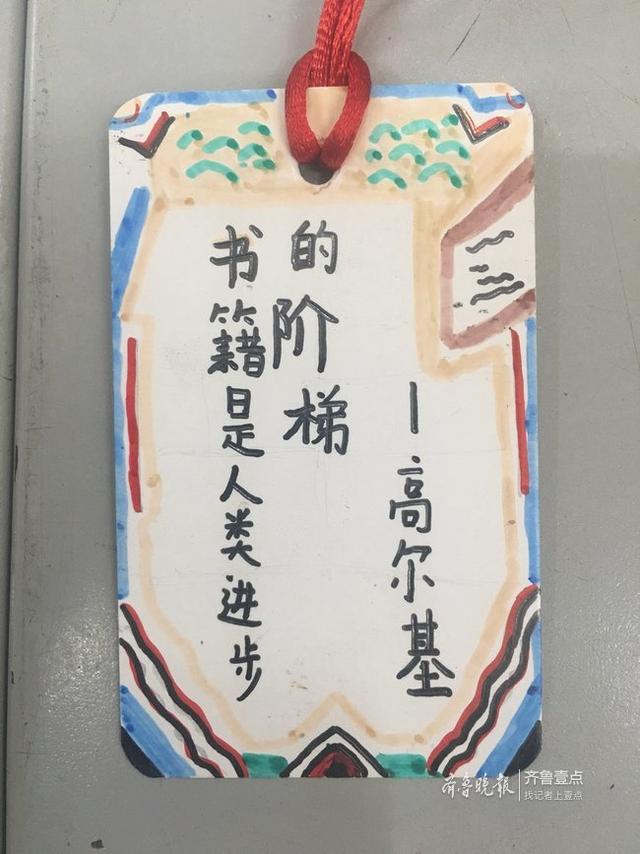 书籍是人类进步
的阶梯
—高尔基
齐鲁晚报
齐鲁壹点
找记者上壹点